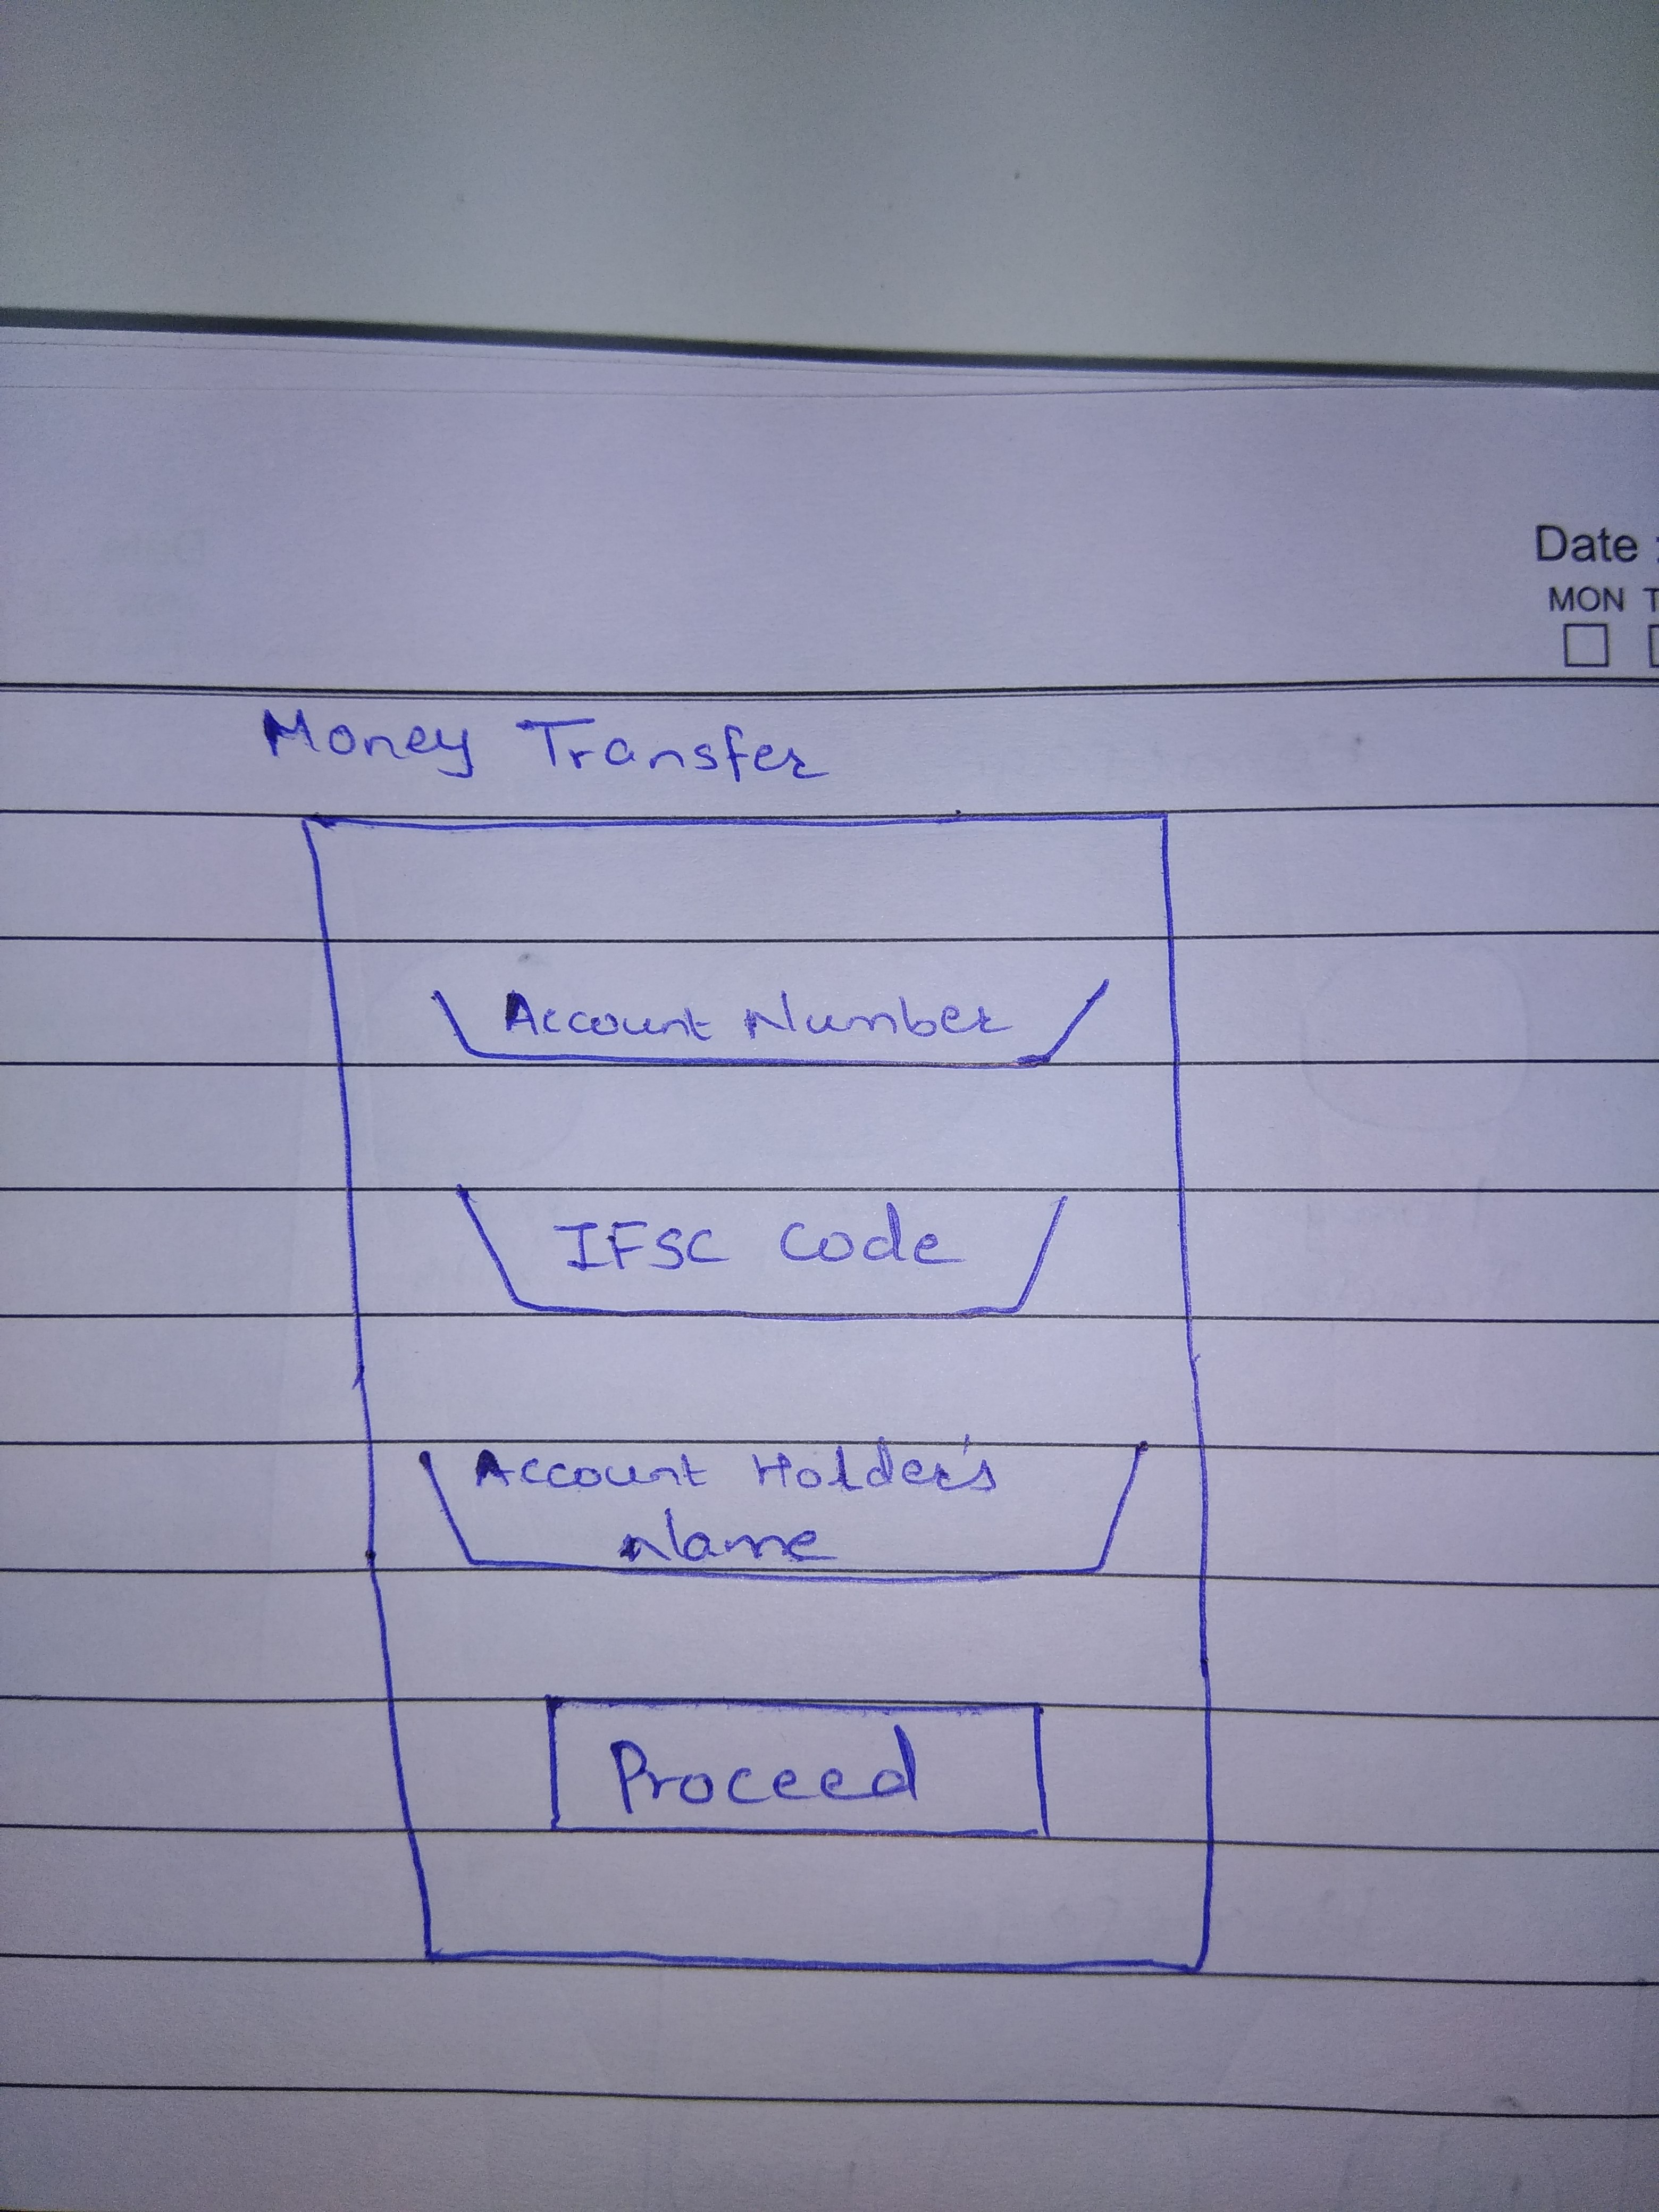 Date :
MON
Money Transfer
Account Number
IFSC Code
Account Holder's
Name
Proceed